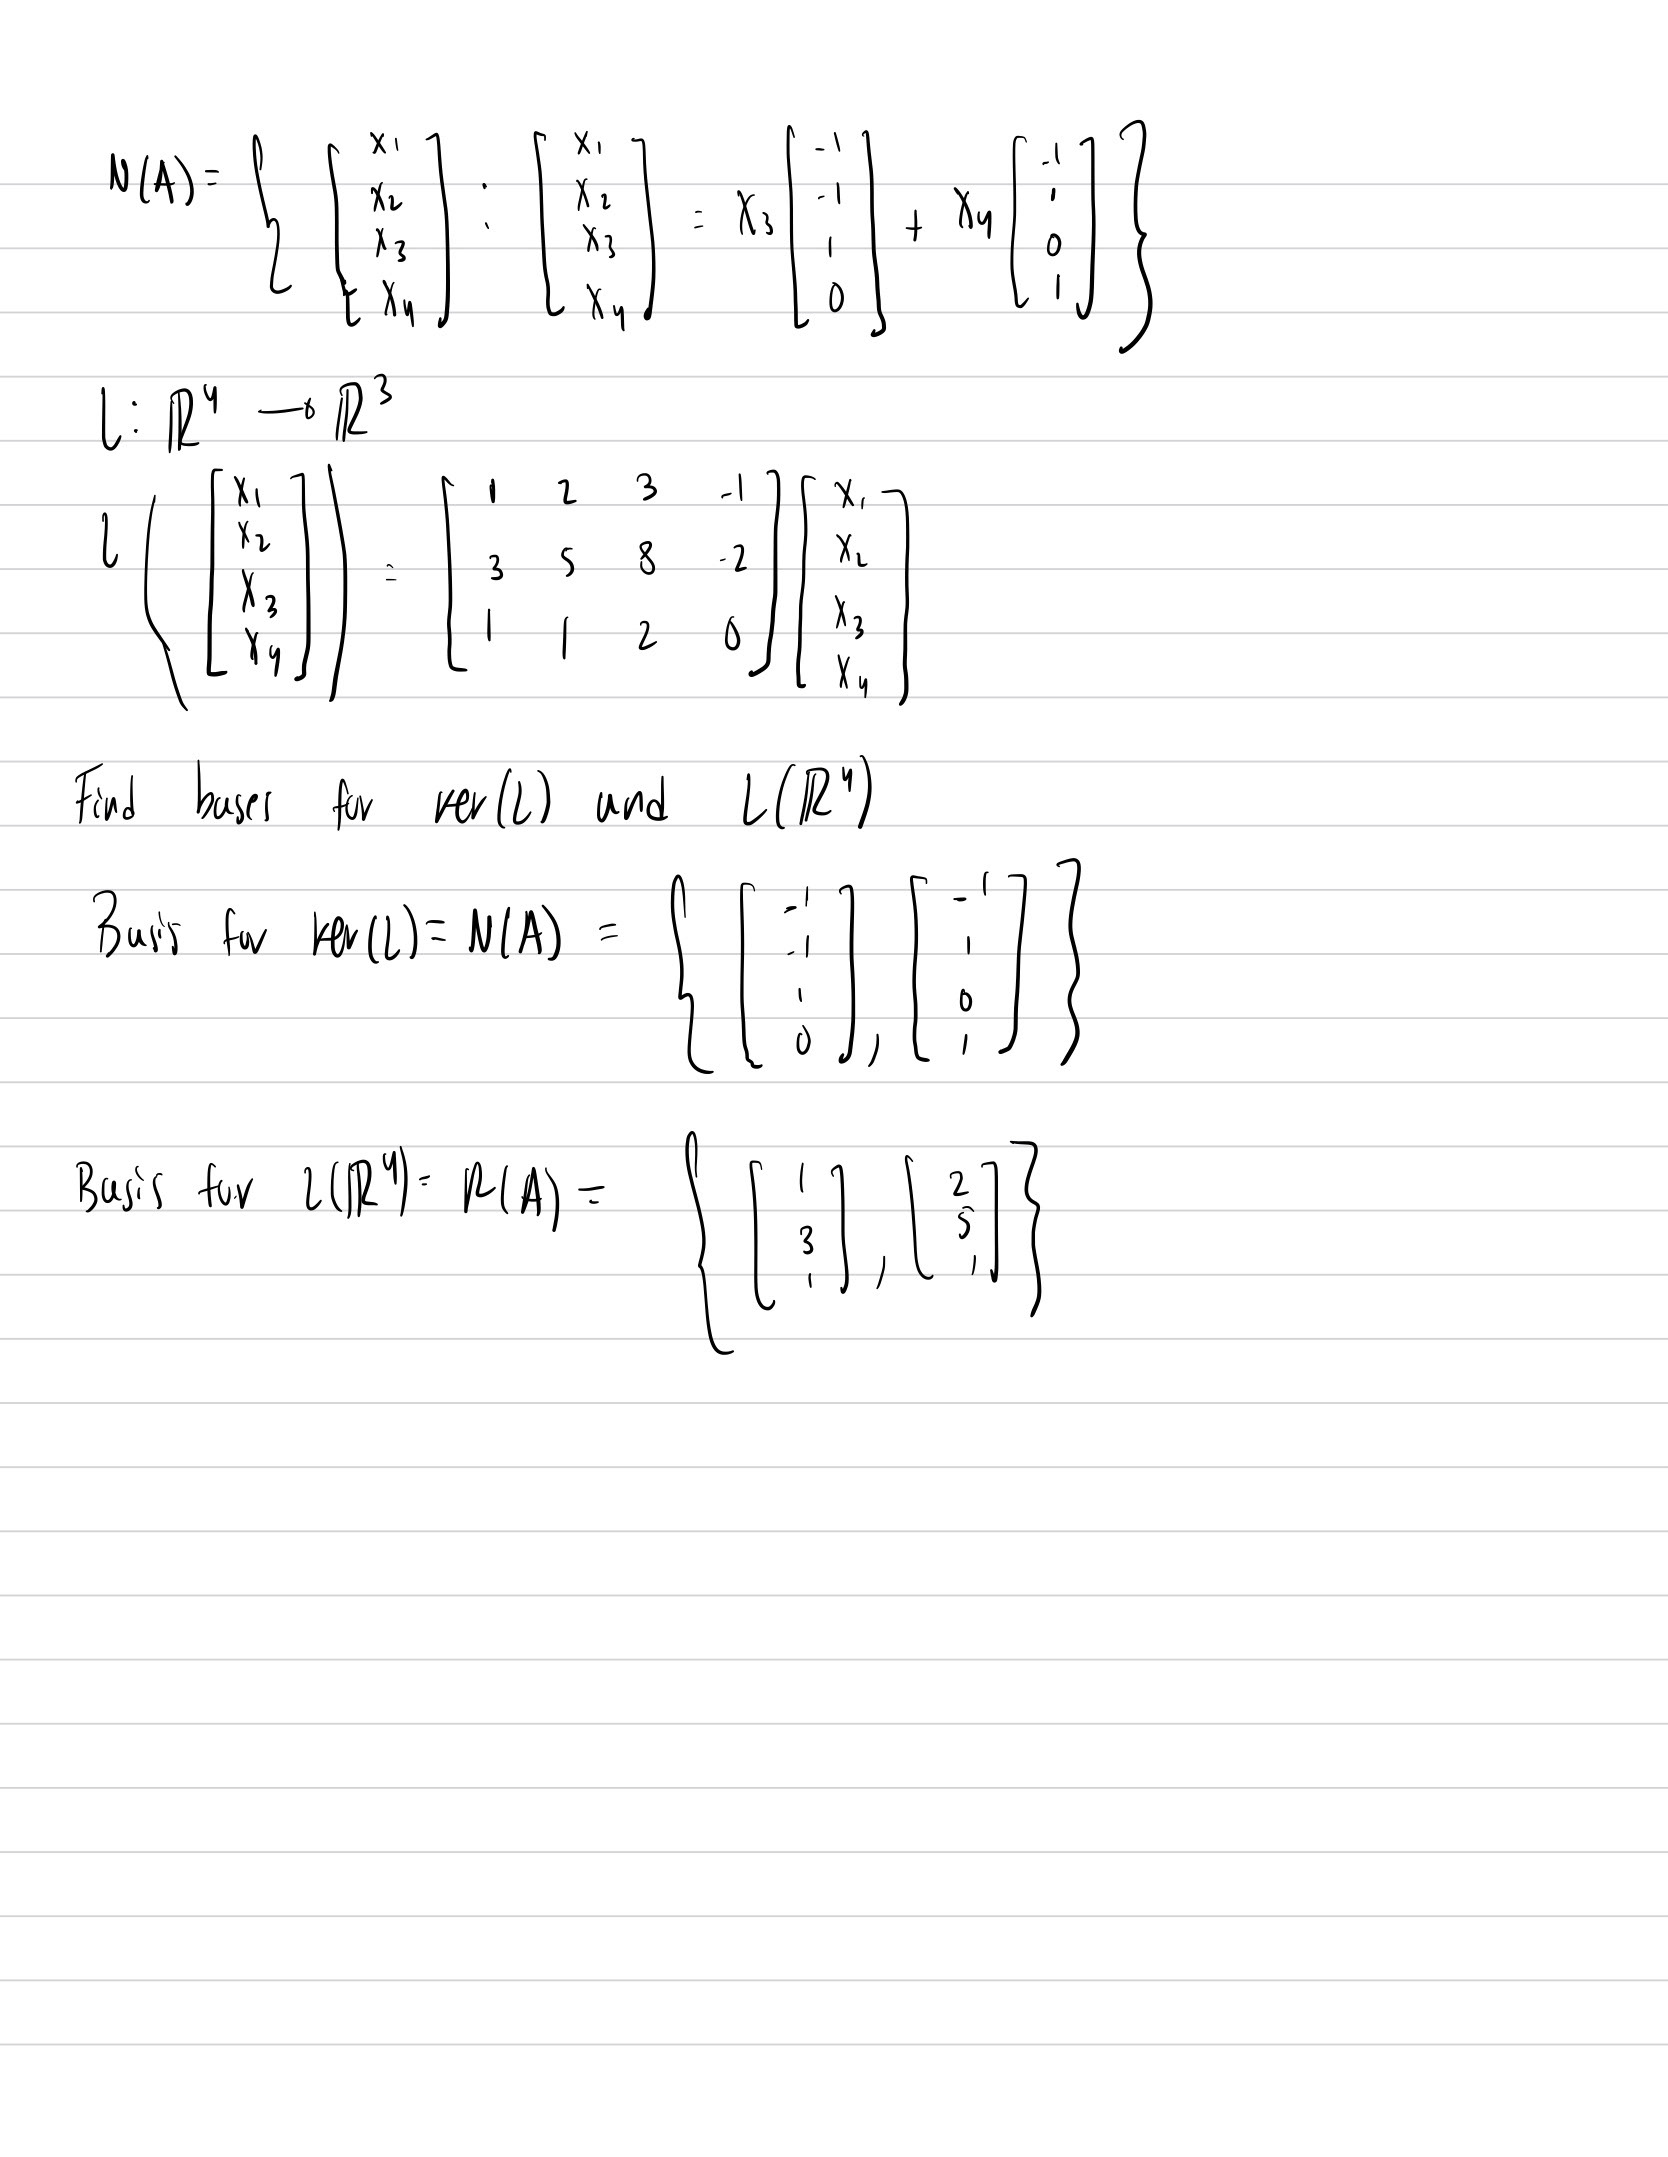 N(A) = { [x1 x2 x3 x4] : [x1 x2 x3 x4] = x3 [-1 -1 1 0] + x4 [-1 1 0 1] }
L: ℝ^4 → ℝ^3
L ( [x1 x2 x3 x4] ) = [1 2 3 -1
3 5 8 -2
1 1 2 0] [x1 x2 x3 x4]
Find bases for ker(L) and L(ℝ^4)
Basis for ker(L) = N(A) = { [-1 -1 1 0], [-1 1 0 1] }
Basis for L(ℝ^4) = R(A) = { [1 3 1], [2 5 1] }